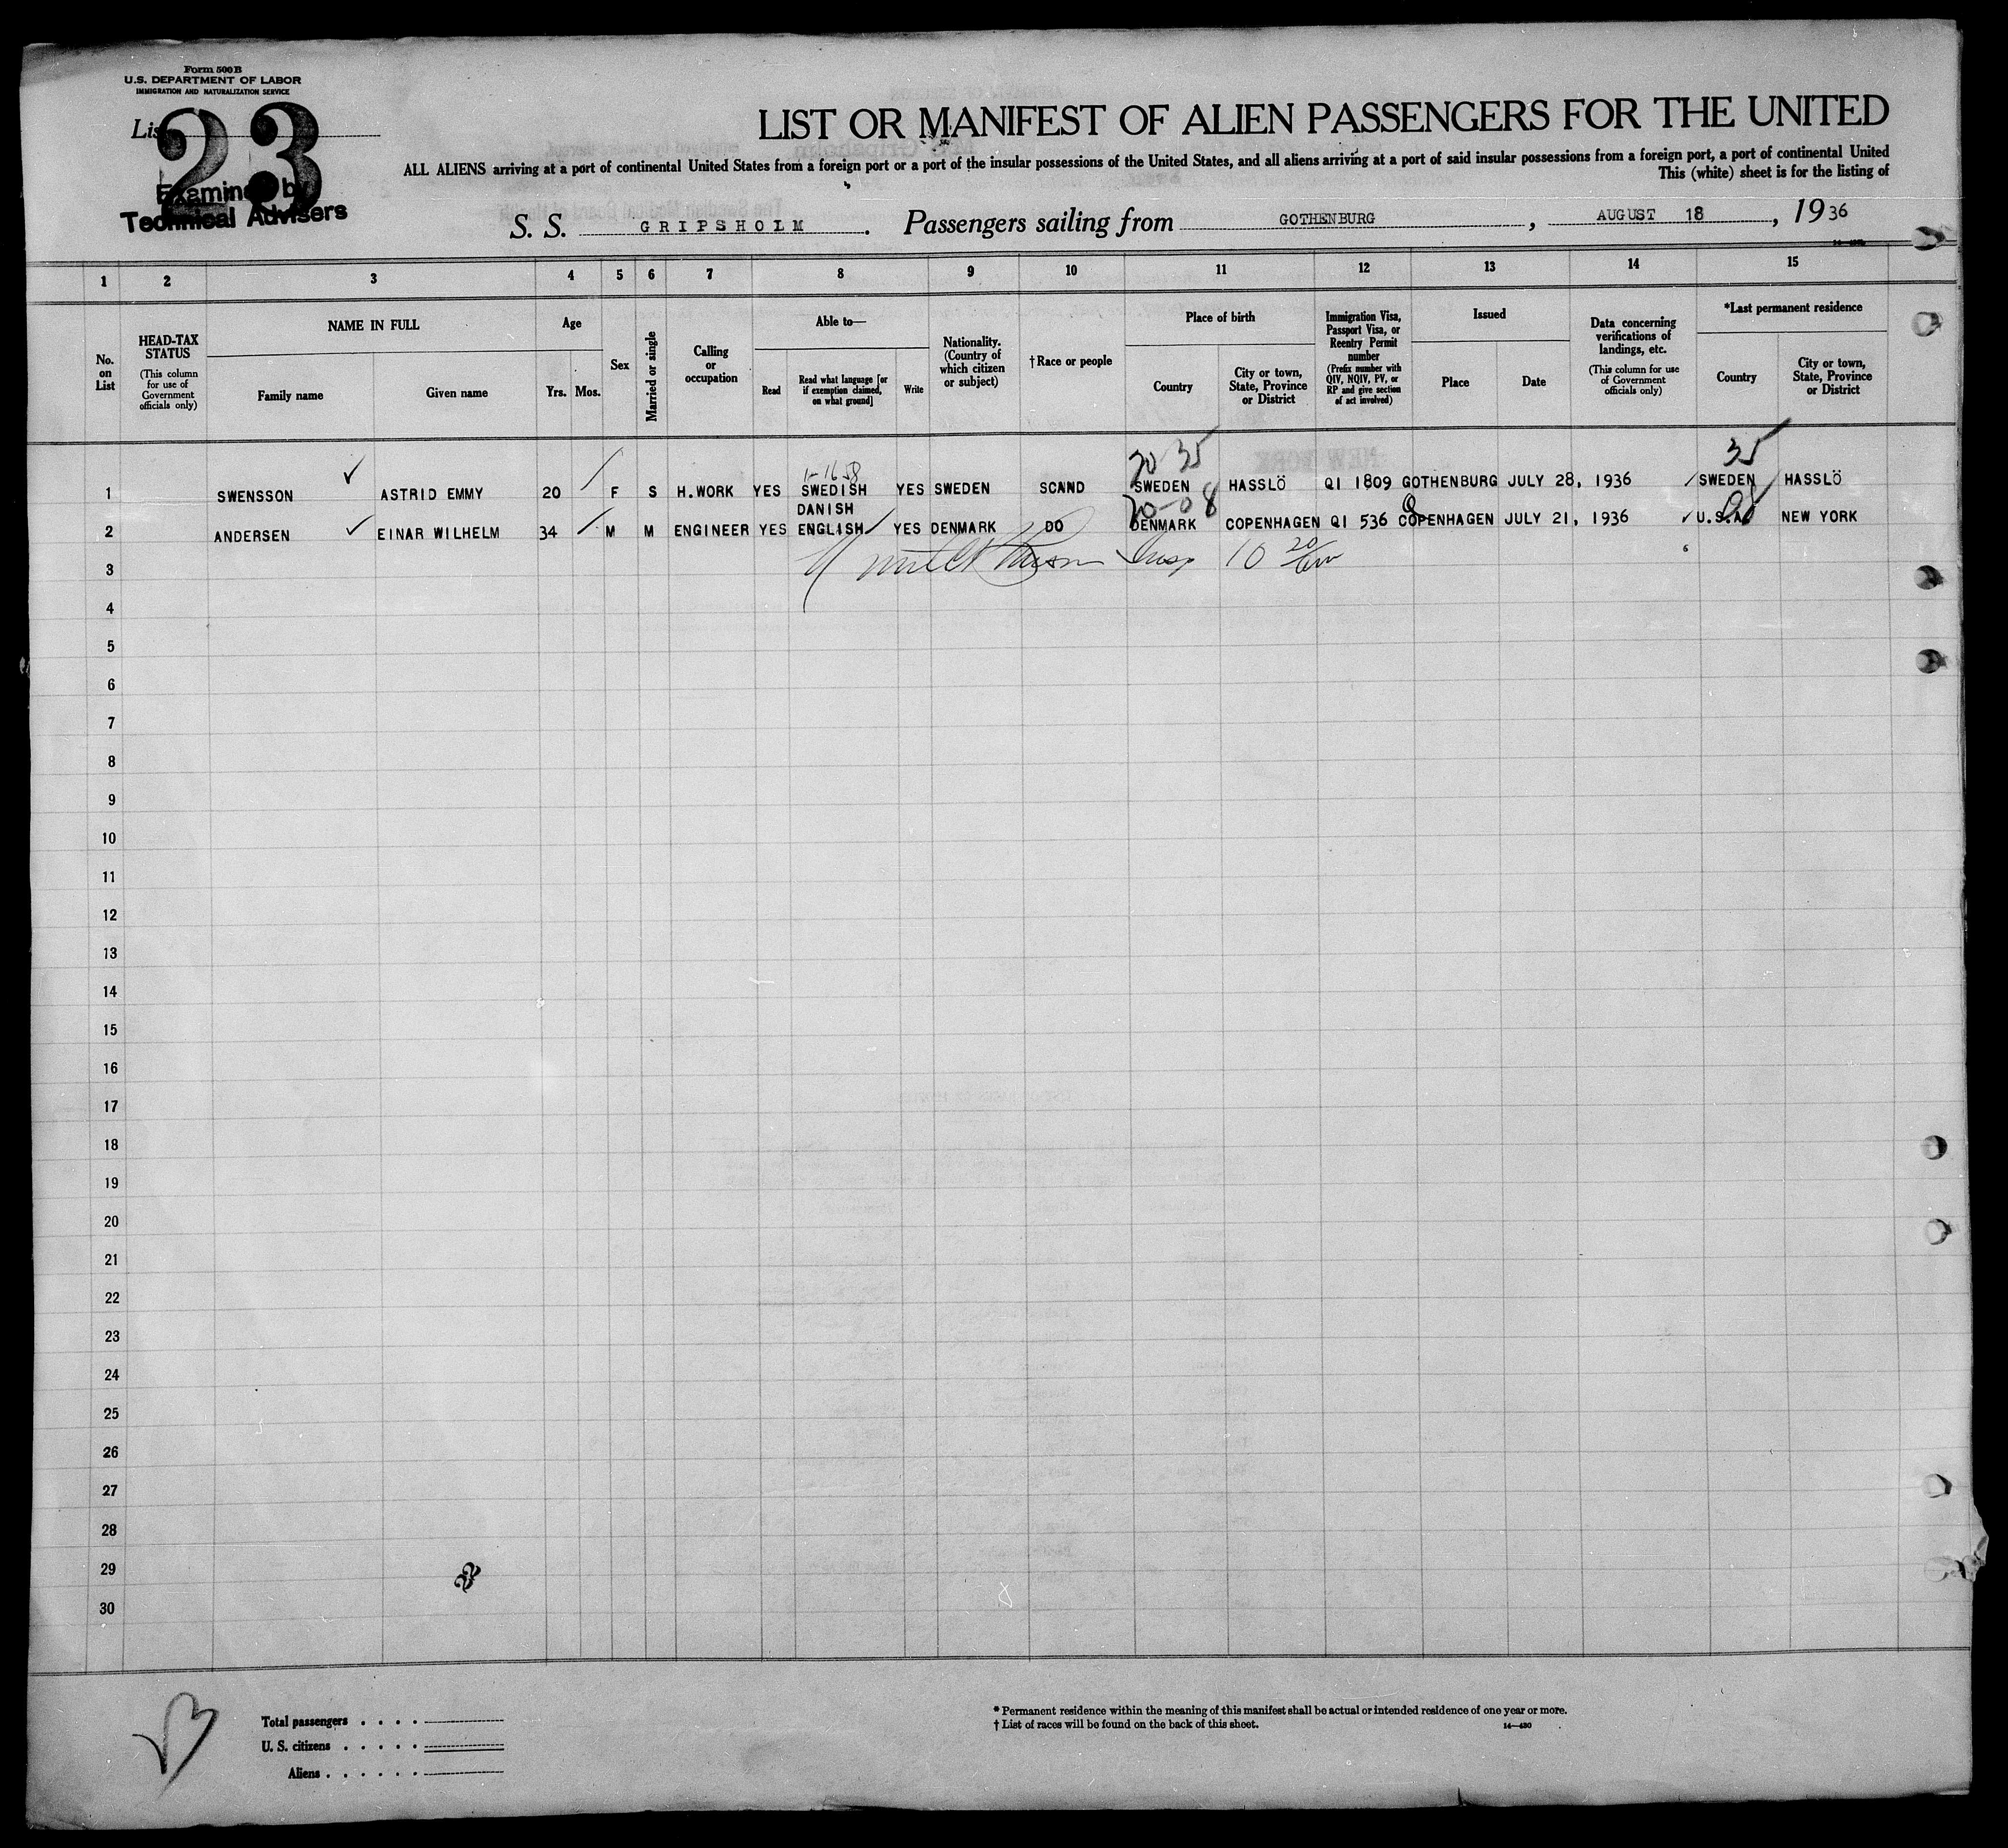 Form 500 B
U.S. DEPARTMENT OF LABOR
IMMIGRATION AND NATURALIZATION SERVICE
List 23
Examined by
Technical Advisers
LIST OR MANIFEST OF ALIEN PASSENGERS FOR THE UNITED
ALL ALIENS arriving at a port of continental United States from a foreign port or a port of the insular possessions of the United States, and all aliens arriving at a port of said insular possessions from a foreign port, a port of continental United
This (white) sheet is for the listing of
S. S. GRIPSHOLM. Passengers sailing from GOTHENBURG, AUGUST 18, 1936
1 2 3 4 5 6 7 8 9 10 11 12 13 14 15
No. on List
HEAD-TAX STATUS
(This column for use of Government officials only)
NAME IN FULL
Family name
Given name
Age
Yrs. Mos.
Sex
Married or single
Calling or occupation
Able to—
Read
Read what language [or if exemption claimed, on what ground]
Write
Nationality. (Country of which citizen or subject)
†Race or people
Place of birth
Country
City or town, State, Province or District
Immigration Visa, Passport Visa, or Reentry Permit number
(Prefix number with QIV, NQIV, PV, or RP and give section of act involved)
Issued
Place
Date
Data concerning verifications of landings, etc.
(This column for use of Government officials only)
*Last permanent residence
Country
City or town, State, Province or District
20 35 35
1 SWENSSON ASTRID EMMY 20 F S H.WORK YES SWEDISH YES SWEDEN SCAND SWEDEN HASSLÖ QI 1809 GOTHENBURG JULY 28, 1936 SWEDEN HASSLÖ
DANISH 20-08
2 ANDERSEN EINAR WILHELM 34 M M ENGINEER YES ENGLISH YES DENMARK DO DENMARK COPENHAGEN QI 536 COPENHAGEN JULY 21, 1936 U.S.A. NEW YORK
3
4
5
6
7
8
9
10
11
12
13
14
15
16
17
18
19
20
21
22
23
24
25
26
27
28
29
30
Total passengers
U. S. citizens
Aliens
* Permanent residence within the meaning of this manifest shall be actual or intended residence of one year or more.
† List of races will be found on the back of this sheet.
14—430